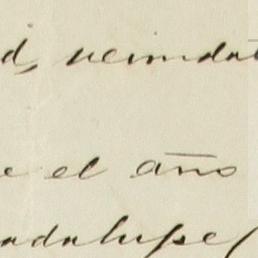 d, vecindat
e el año
adalupe(